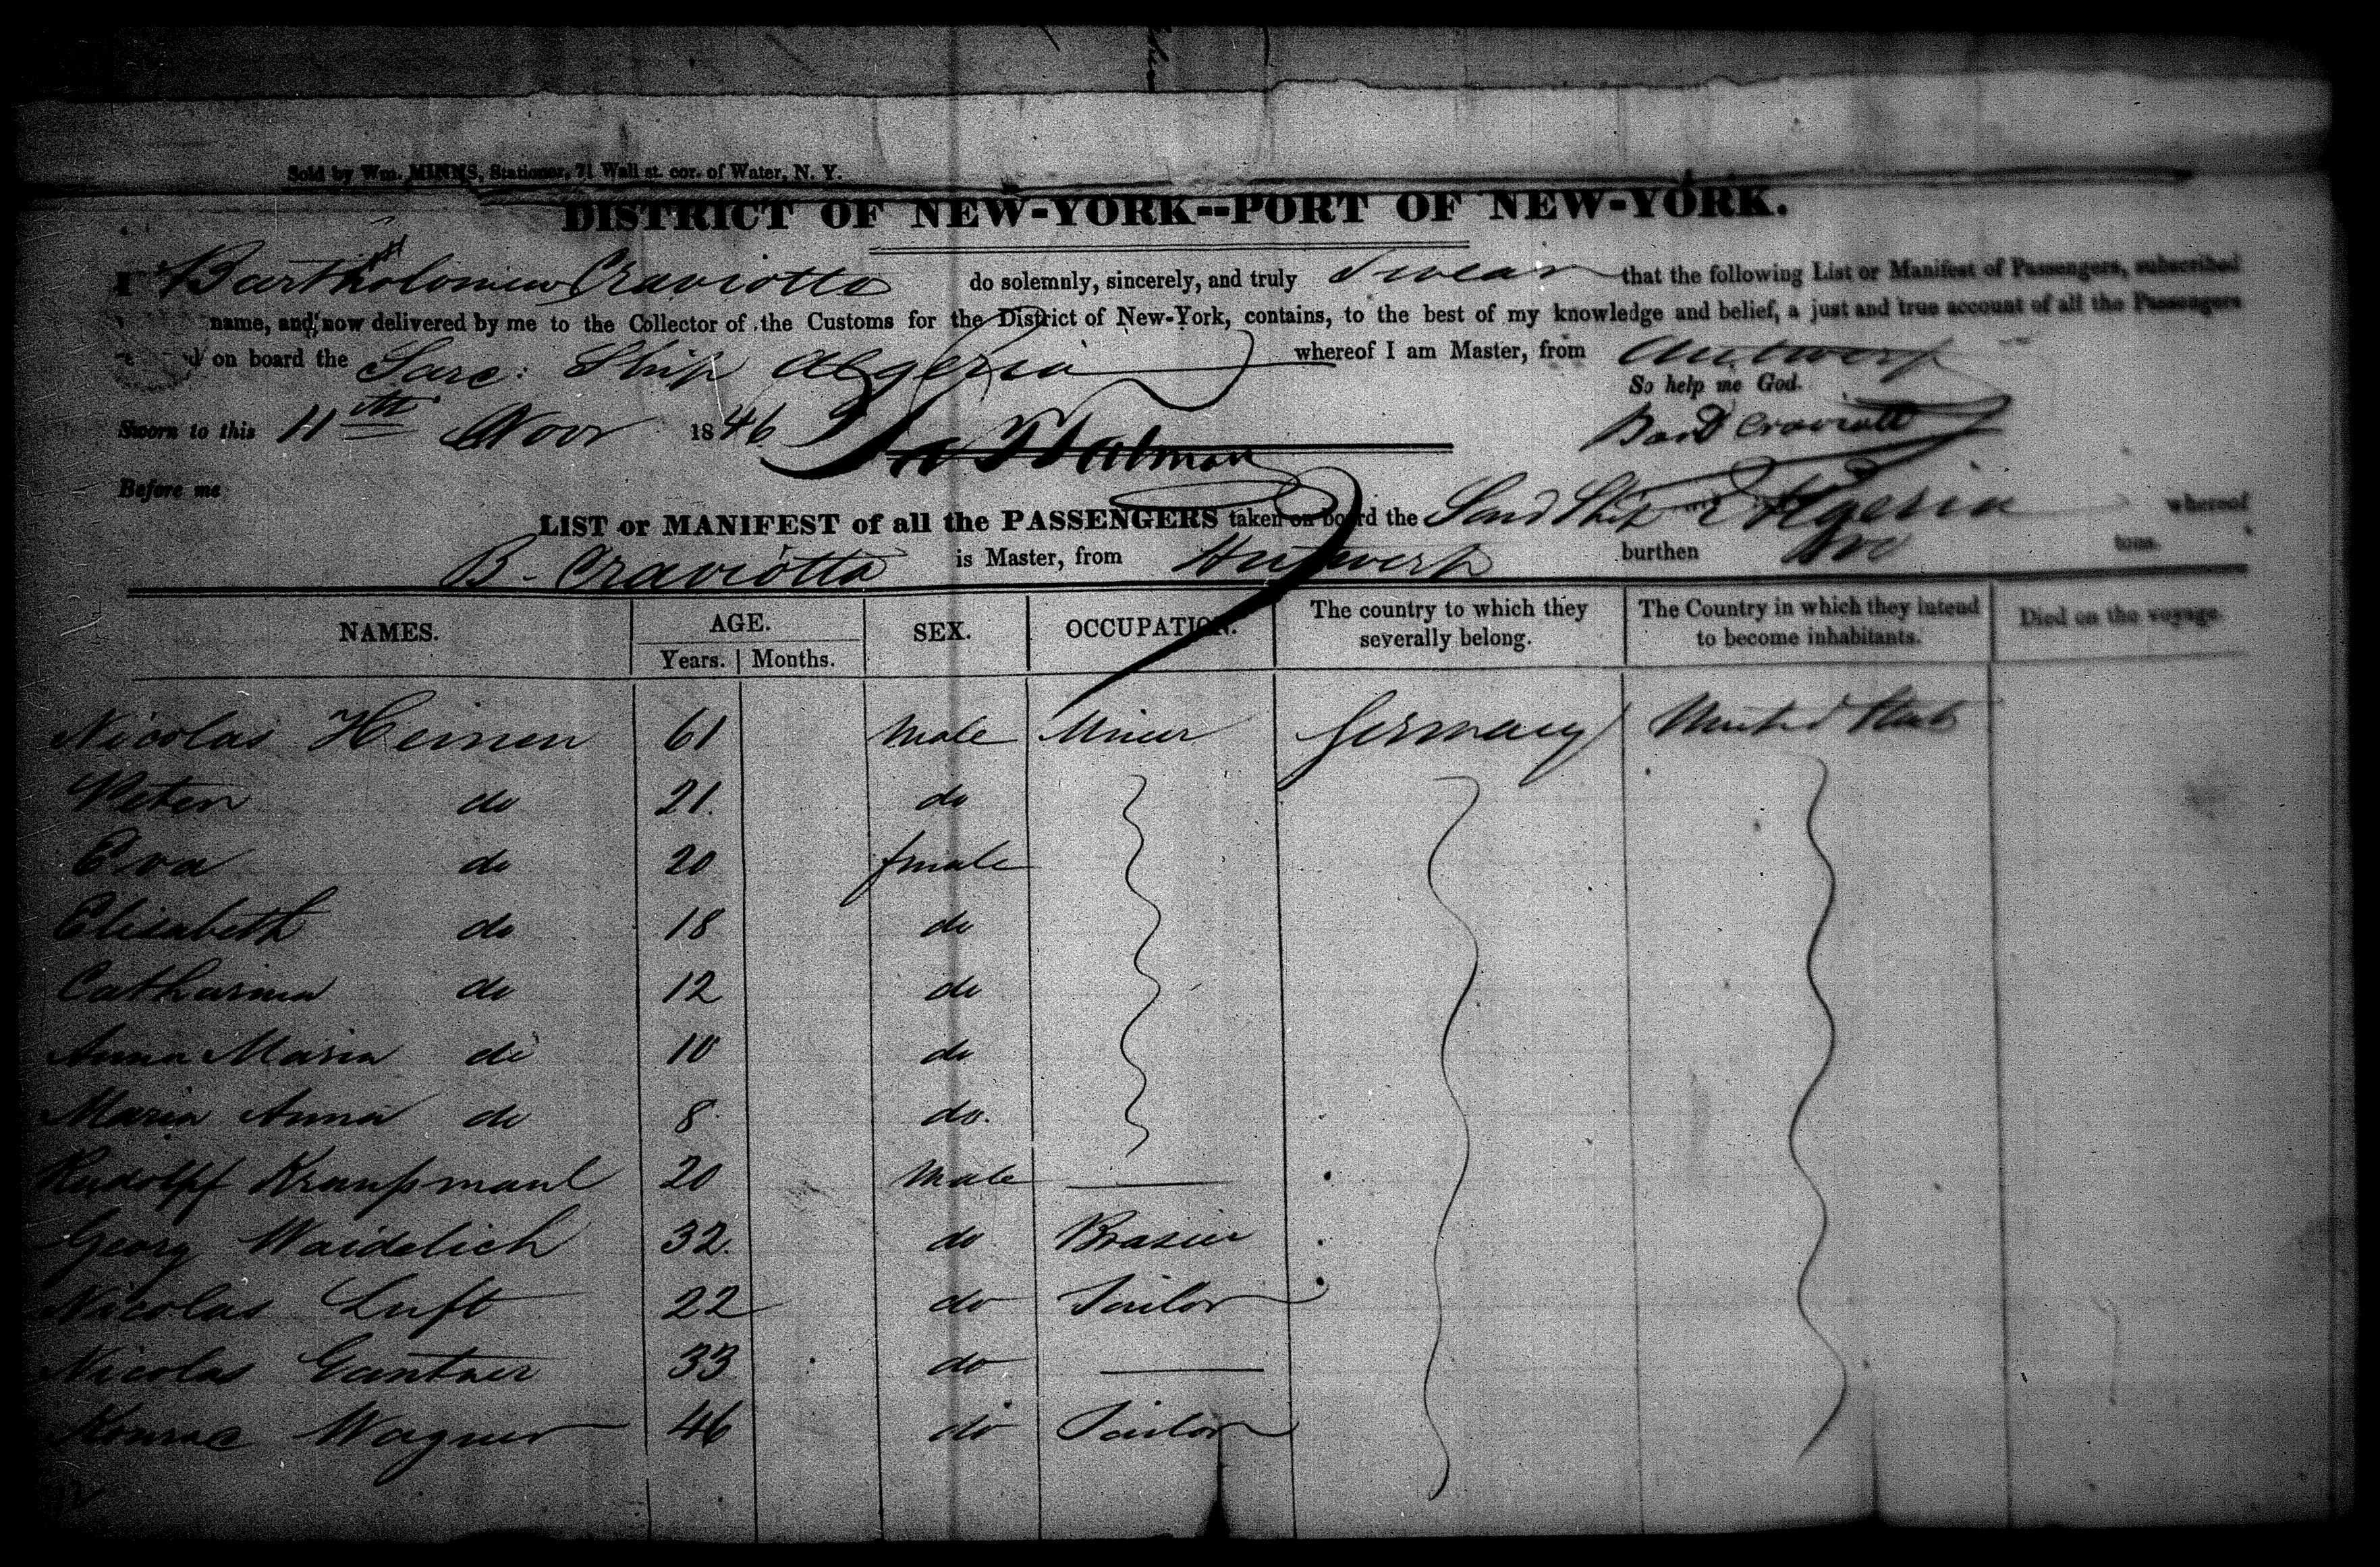 Sold by Wm. MINNS, Stationer, 71 Wall st. cor. of Water, N. Y.
DISTRICT OF NEW-YORK--PORT OF NEW-YORK.
I Bartholomew Craviotto do solemnly, sincerely, and truly Swear that the following List or Manifest of Passengers, subscribed
name, and now delivered by me to the Collector of the Customs for the District of New-York, contains, to the best of my knowledge and belief, a just and true account of all the Passengers
on board the Sard: Ship Algeria whereof I am Master, from Antwerp
So help me God.
Sworn to this 11th Novr 1846
Before me
LIST or MANIFEST of all the PASSENGERS taken on board the Sard Ship Algeria whereof
B. Craviotto is Master, from Antwerp burthen tons.
NAMES. AGE. SEX. OCCUPATION. The country to which they severally belong. The Country in which they intend to become inhabitants. Died on the voyage.
Years. Months.
Nicolas Heinen 61 Male Miner Germany United Stats
Peter do 21. do
Eva do 20 fmale
Elisabeth do 18 do
Catharina do 12 do
Anna Maria do 10 do
Maria Anna do 8 do.
Rudolpf Kraußmaul 20 Male
Georg Waidelich 32. do Brasier
Nicolas Luft 22 do Tailor
Nicolas Gantner 33 do
Konrad Wagner 46 do Tailor